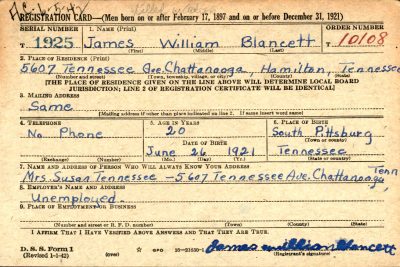 REGISTRATION CARD—(Men born on or after February 17, 1897 and on or before December 31, 1921)
SERIAL NUMBER 1. NAME (Print) ORDER NUMBER
T 1925 James William Blancett 10108
(First) (Middle) (Last)
2. PLACE OF RESIDENCE (Print)
5607 Tennessee Ave. Chattanooga, Hamilton, Tennessee
(Number and street) (Town, township, village, or city) (County) (State)
[THE PLACE OF RESIDENCE GIVEN ON THE LINE ABOVE WILL DETERMINE LOCAL BOARD
JURISDICTION; LINE 2 OF REGISTRATION CERTIFICATE WILL BE IDENTICAL]
3. MAILING ADDRESS
Same
[Mailing address if other than place indicated on line 2. If same insert word same]
4. TELEPHONE 5. AGE IN YEARS 6. PLACE OF BIRTH
No Phone 20 South Pittsburg
DATE OF BIRTH (Town or county)
June 26 1921 Tennessee
(Exchange) (Number) (Mo.) (Day) (Yr.) (State or country)
7. NAME AND ADDRESS OF PERSON WHO WILL ALWAYS KNOW YOUR ADDRESS
Mrs. Susan Tennessee - 5607 Tennessee Ave. Chattanooga Tenn
8. EMPLOYER'S NAME AND ADDRESS
Unemployed
9. PLACE OF EMPLOYMENT OR BUSINESS
(Number and street or R. F. D. number) (Town) (County) (State)
I AFFIRM THAT I HAVE VERIFIED ABOVE ANSWERS AND THAT THEY ARE TRUE.
D. S. S. Form 1 GPO James William Blancett
(Revised 1-1-42) (Registrant's signature)